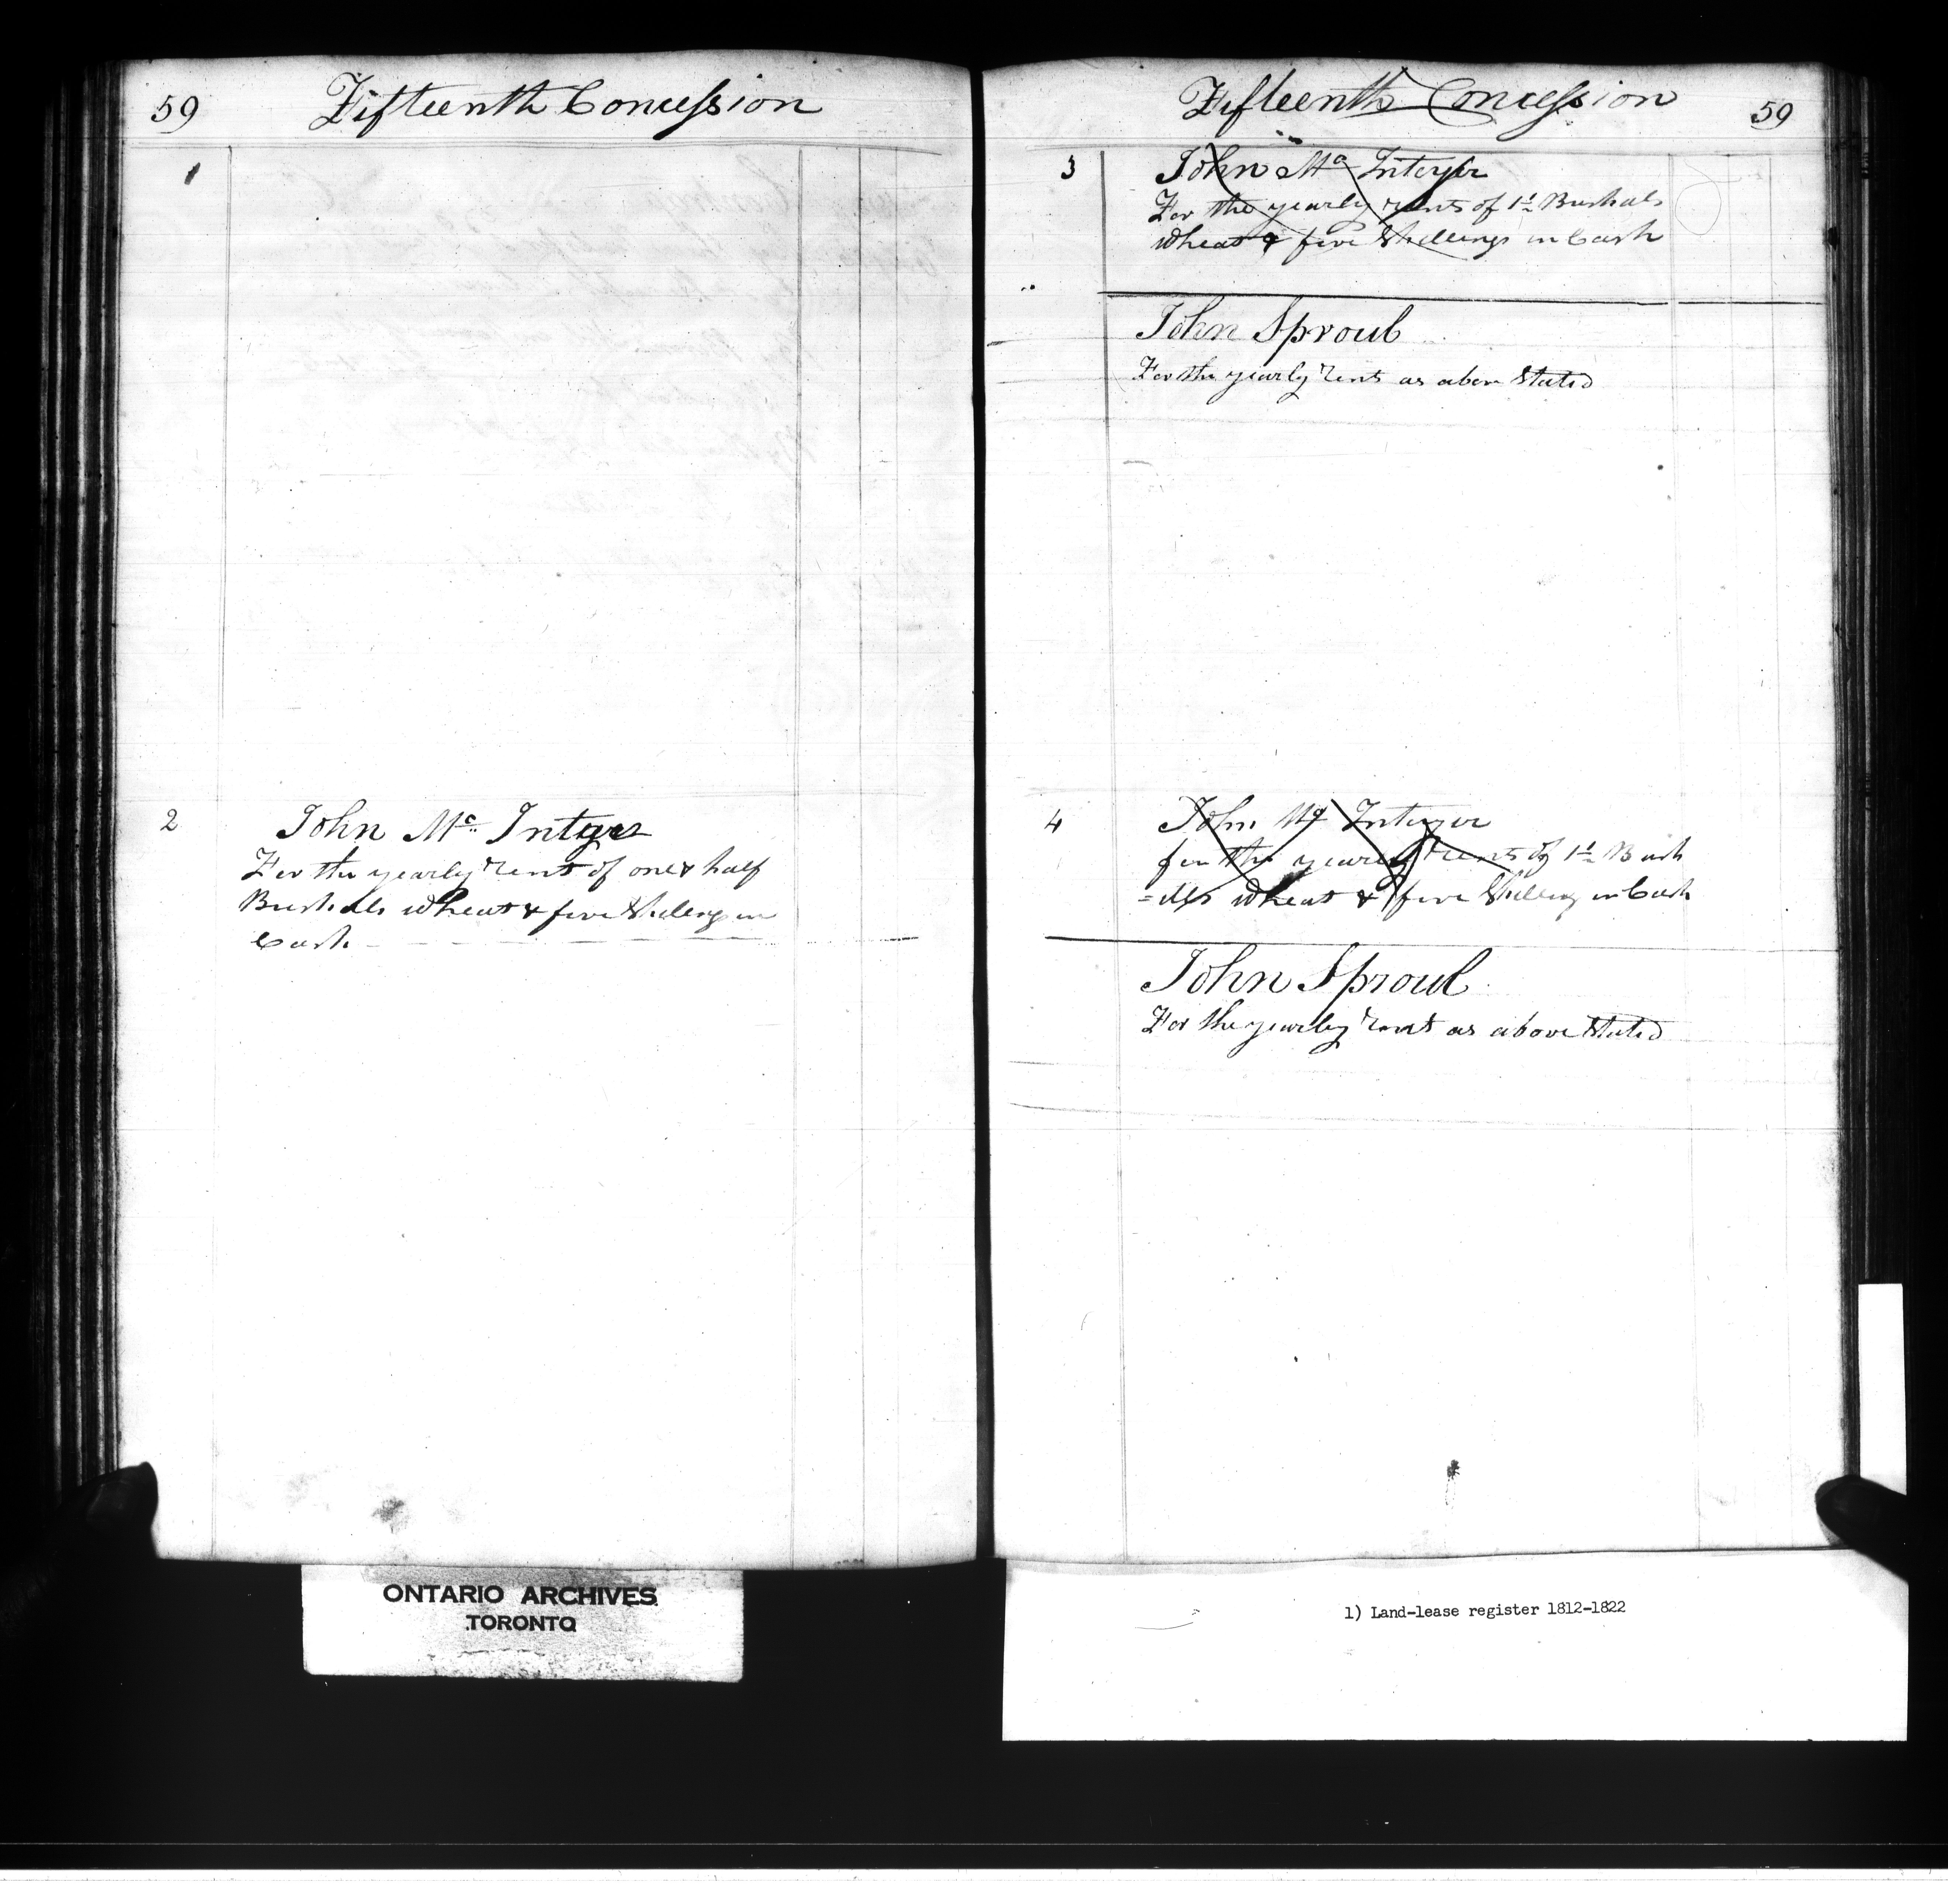 59 Fifteenth Concession
1
2 John Mc Intyer
For the yearly rent of one & half
Bushals wheat & five Shillings in
Cash
Fifteenth Concession 59
3 John Mc Intyer
For the yearly rents of 1½ Bushals
wheat & five Shillings in Cash
John Sproul
For the yearly rent as above Stated
4 John Mc Intyer
for the yearly rents of 1½ Bush
=als wheat & five Shilling in Cash
John Sproul
For the yearly rent as above Stated
ONTARIO ARCHIVES
TORONTO
1) Land-lease register 1812-1822